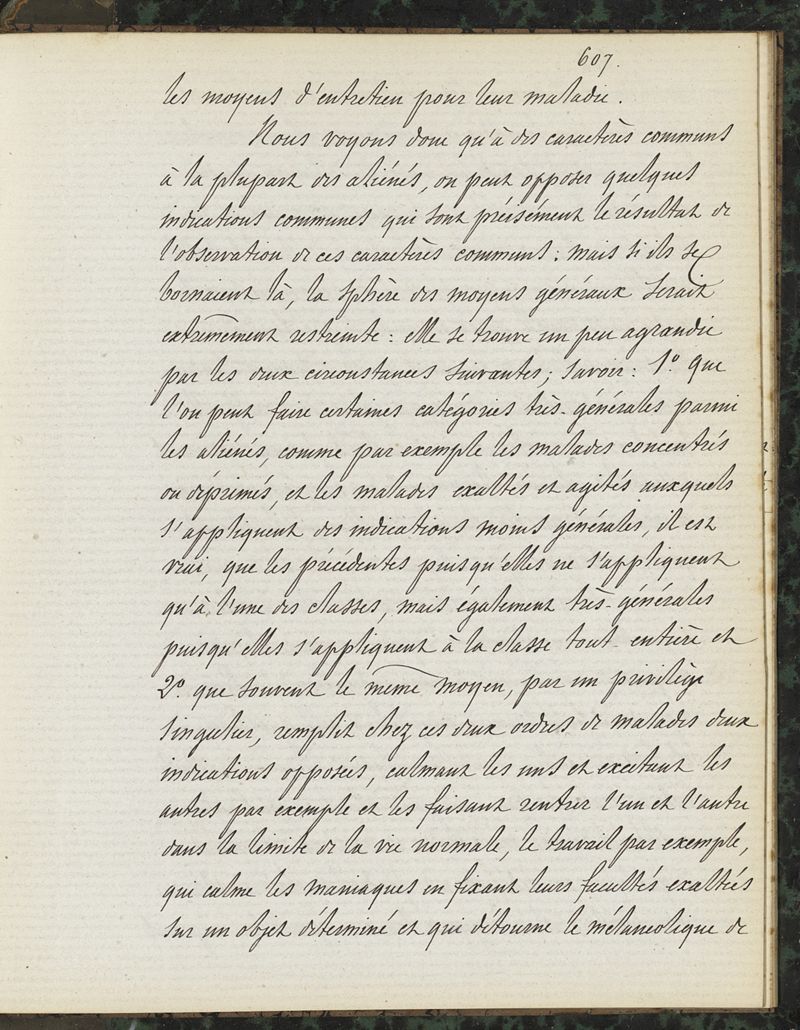 607.
les moyens d'entretien pour leur maladie.
Nous voyons donc qu'à des caractères communs
à la plupart des aliénés, on peut opposer quelques
indications communes qui sont précisément le résultat de
l'observation de ces caractères communs : mais si ils se
bornaient là, la sphère des moyens généraux serait
extrêmement restreinte : elle se trouve un peu agrandie
par les deux circonstances suivantes ; savoir : 1º. que
l'on peut faire certaines catégories très-générales parmi
les aliénés, comme par exemple les malades concentrés
ou déprimés, et les malades exaltés et agités auxquels
s'appliquent des indications moins générales, il est
vrai, que les précédentes puisqu'elles ne s'appliquent
qu'à l'une des classes, mais également très-générales
puisqu'elles s'appliquent à la classe tout-entière et
2º. que souvent le même moyen, par un privilège
singulier, remplit chez ces deux ordres de malades deux
indications opposées, calmant les uns et excitant les
autres par exemple et les faisant rentrer l'un et l'autre
dans la limite de la vie normale, le travail par exemple,
qui calme les maniaques en fixant leurs facultés exaltées
sur un objet déterminé et qui détourne le mélancolique de